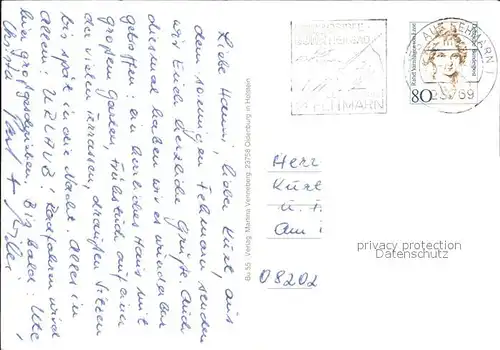 Liebe Hanni, lieber Kurt, aus
dem sonnigen Fehmarn senden
wir Euch herzliche Grüße. Auch
diesmal haben wir es wunderbar
getroffen: ein herrliches Haus mit
großem Garten, Frühstück auf einer
der vielen Terrassen, draußen Sitzen
bis spät in die Nacht. Alles in
Allem: URLAUB! Radfahren wird
hier großgeschrieben. Bis bald: Ute,
Bu 55 Verlag Martina Venneberg 23758 Oldenburg in Holstein
FEHMARN
AUF FEHMARN
23769
80
Herr
Kurt
u.
Am
08202
privacy protection
Datenschutz